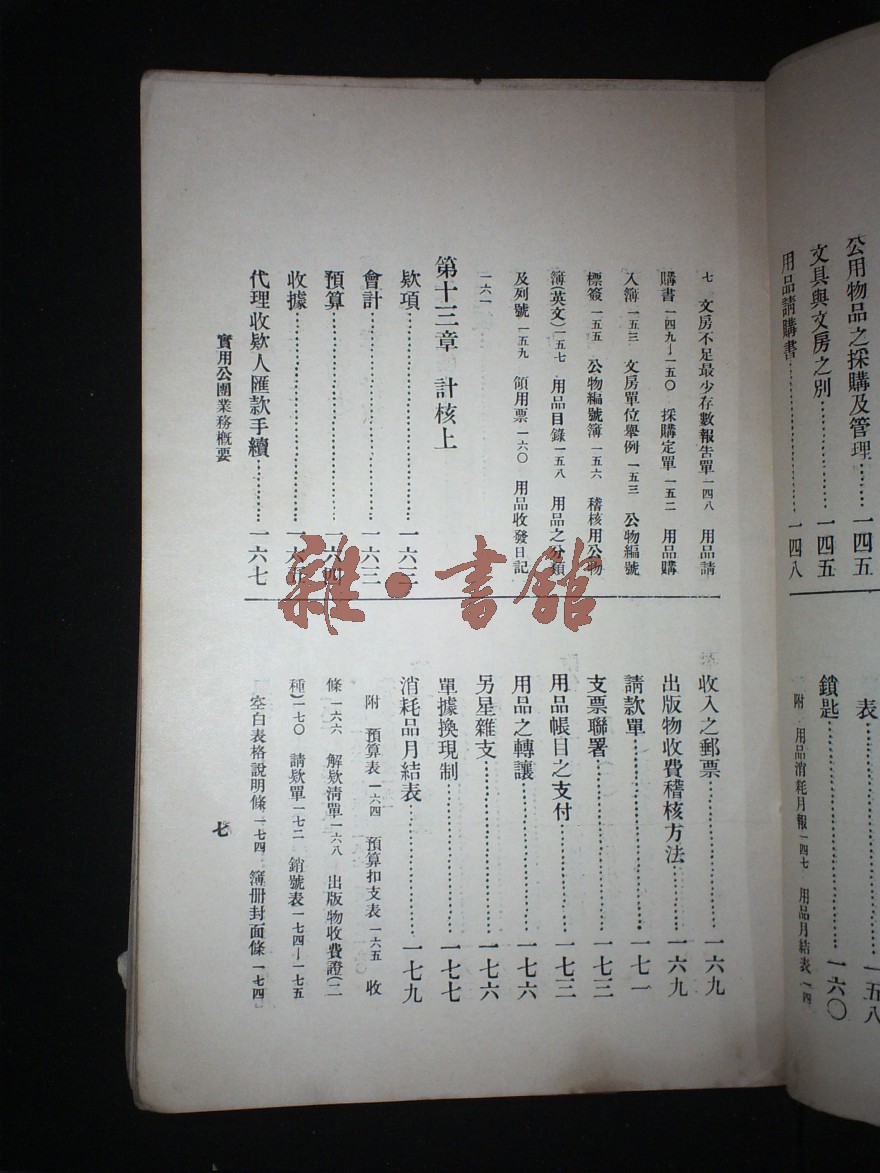 公用物品之採購及管理……一四五
文具與文房之別……一四五
用品請購書……一四八
表……一五八
鎖匙……一六〇
附 用品消耗月報一四七 用品月結表一四
七 文房不足最少存數報告單一四八 用品請
購書一四九—一五〇 採購定單一五二 用品購
入簿一五三 文房單位舉例一五三 公物編號
標簽一五五 公物編號簿一五六 稽核用公物
簿(英文)一五七 用品目錄一五八 用品之分類
及列號一五九 領用票一六〇 用品收發日記
一六一
第十三章 計核上
欵項……一六三
會計……一六三
預算……一六四
收據……一六五
代理收欵人匯款手續……一六七
收入之郵票……一六九
出版物收費稽核方法……一六九
請款單……一七一
支票聯署……一七三
用品帳目之支付……一七三
用品之轉讓……一七六
另星雜支……一七六
單據換現制……一七七
消耗品月結表……一七九
附 預算表一六四 預算扣支表一六五 收
條一六六 解欵清單一六八 出版物收費證(二
種)一七〇 請欵單一七二 銷號表一七四—一七五
空白表格說明條一七四 簿册封面條一七四
實用公團業務概要
七
雜·書館